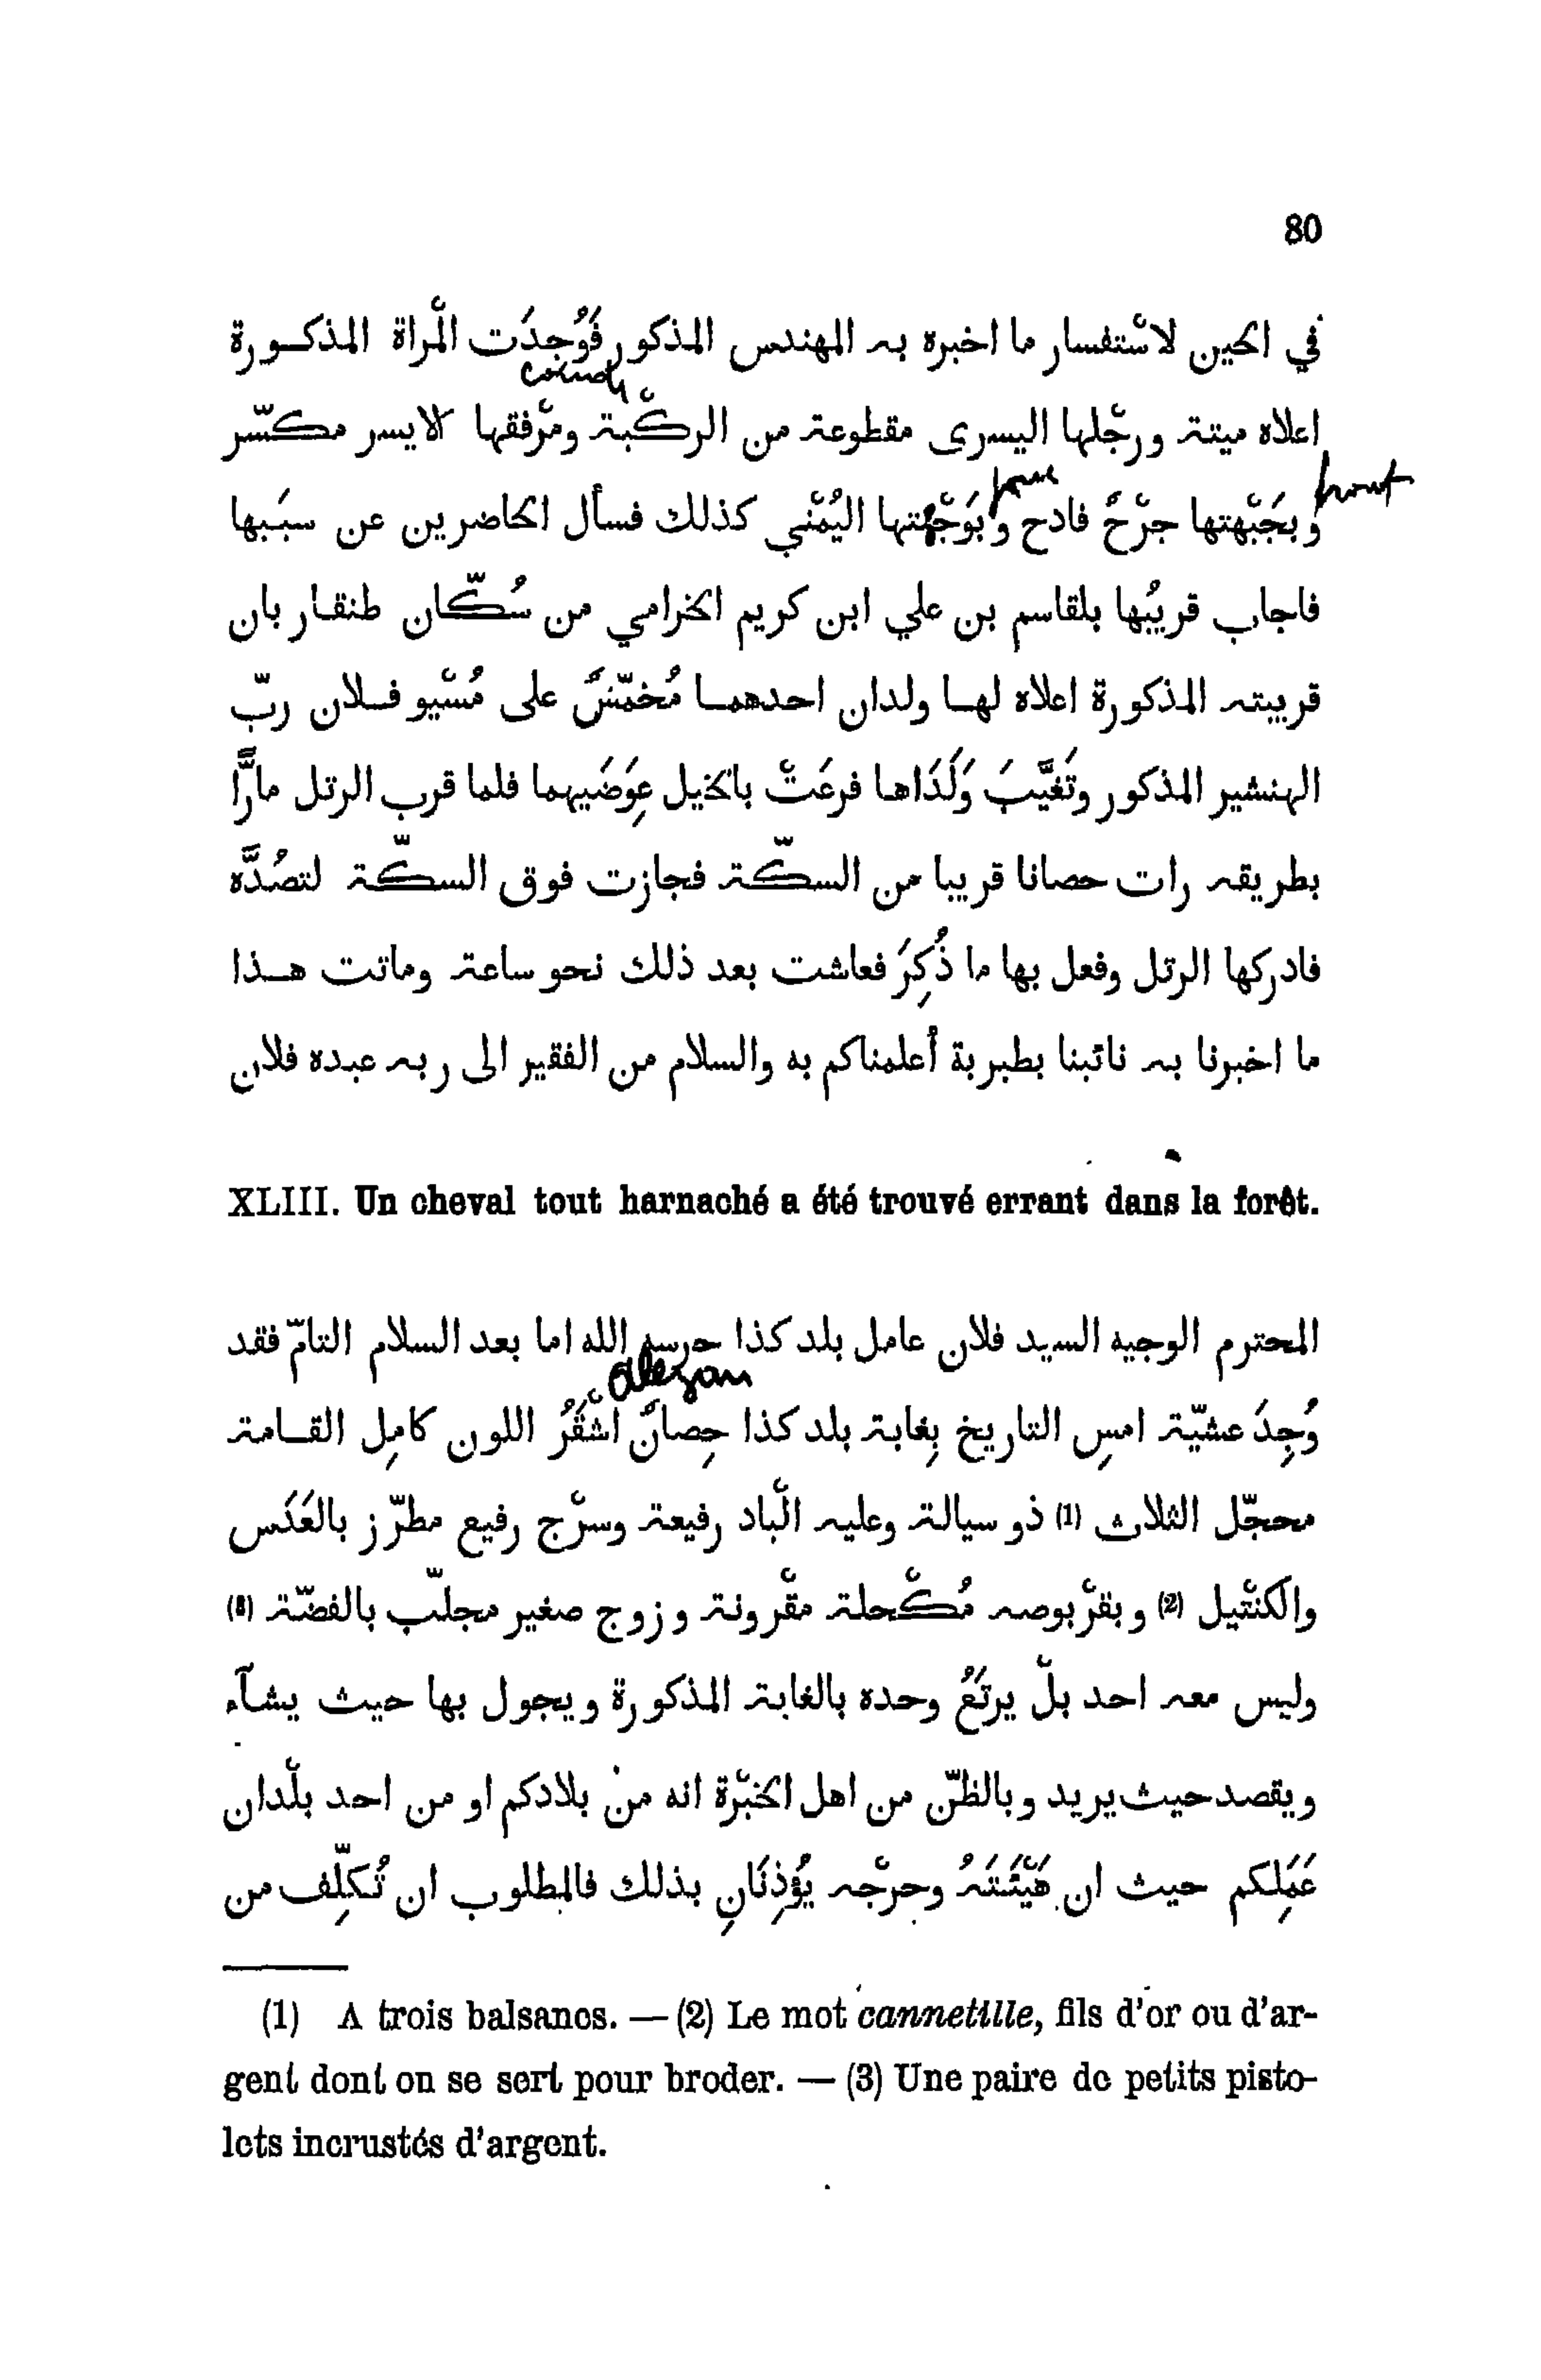 80
في الحين لاسْتفسار ما اخبره به المهندس المذكور فَوُجِدَت الْمراة المذكورة
coude
اعلاه ميتة ورجْلها اليسرى مقطوعة من الركْبة ومرْفقها الايسر مكسّر
joue
front
وَبجَبْهتها جرْحٌ فادح وَبوَجْهتها اليُمْنٰي كذلك فسأل الحاضرين عن سبَبها
فاجاب قريبُها بلقاسم بن علي ابن كريم الخرامي من سُكّان طنقار بان
قريبته المذكورة اعلاه لها ولدان احدهما مُخمّسٌ على مُسْيو فلان ربّ
الهنشير المذكور وتَغيَّبَ وَلَدَاها فرعَتْ بالخيل عِوَضَيهما فلما قرب الرتل مارًّا
بطريقه رات حصانا قريبا من السكّة فجازت فوق السكّة لتصُدَّه
فادركها الرتل وفعل بها ما ذُكِرَ فعاشت بعد ذلك نحو ساعة وماتت هذا
ما اخبرنا به نائبنا بطبربة أعلمناكم به والسلام من الفقير الى ربه عبده فلان
XLIII. Un cheval tout harnaché a été trouvé errant dans la forêt.
المحترم الوجيه السيد فلان عامل بلد كذا حرسه الله اما بعد السلام التامّ فقد
alezan
وُجِدَ عشيّة امسِ التاريخ بِغابة بلد كذا حِصانٌ اشْقَرُ اللون كامِل القامة
محجّل الثلاث (1) ذو سيالة وعليه الْباد رفيعة وسرْج رفيع مطرّز بالعَدَس
والكنْتيل (2) وبقرْبوصه مُكْحلة مقْرونة وزوج صغير مجلّب بالفضّة (3)
وليس معه احد بلْ يرتَعُ وحده بالغابة المذكورة ويجول بها حيث يشآء
ويقصد حيث يريد وبالظنّ من اهل الخبْرة انه منْ بلادكم او من احد بلْدان
عَمَلِكم حيث ان هَيْئَتَهُ وحرجْه يُؤْذِنَانِ بذلك فالمطلوب ان تُكلِّف من
(1) A trois balsanes. — (2) Le mot cannetille, fils d'or ou d'ar-
gent dont on se sert pour broder. — (3) Une paire de petits pisto-
lets incrustés d'argent.